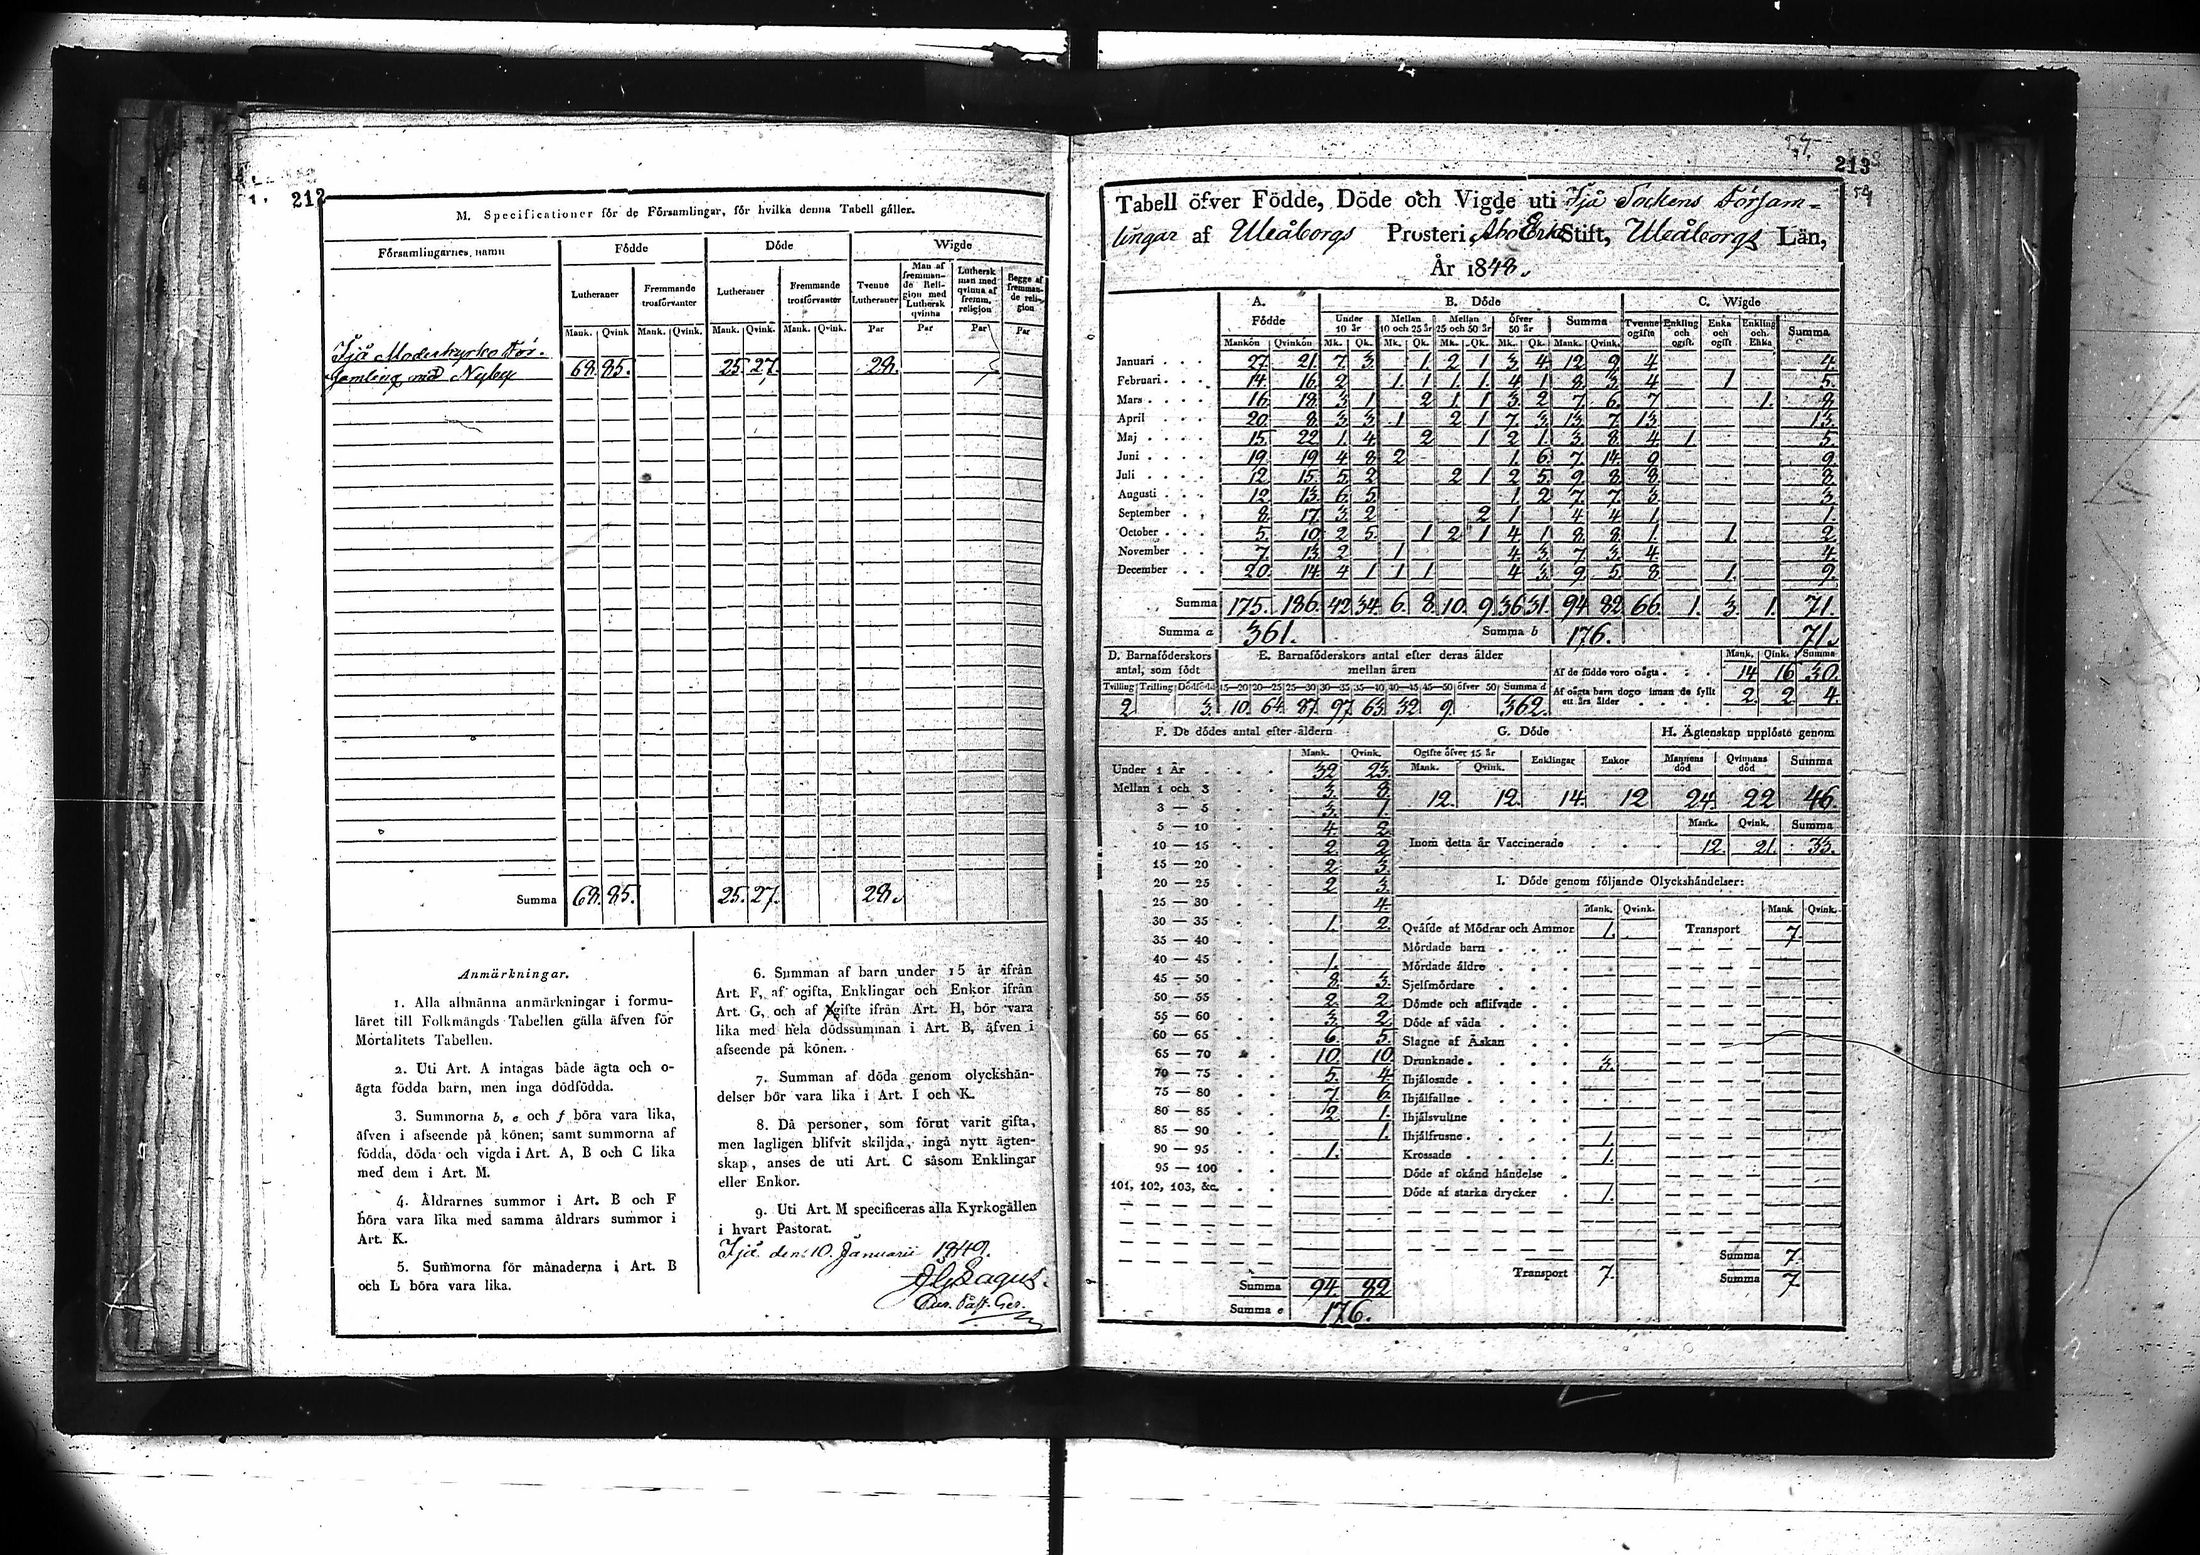 212
M. Specificationer för de Församlingar, för hvilka denna Tabell gäller.
Församlingarnes namn
Födde
Döde
Wigde
Lutheraner
Fremmande trosförvanter
Lutheraner
Fremmande trosförvanter
Tvenne Lutheraner
Man af fremmande Religion med Luthersk qvinna
Luthersk man med qvinna af fremm. religion
Begge af fremmande religion
Mank. Qvink Mank. Qvink. Mank. Qvink. Mank. Qvink. Par Par Par Par
Ijå Moderkyrko För-
samling med Nyby 68. 85. 25. 27. 28.
Summa 68. 85. 25. 27. 28.
Anmärkningar.
1. Alla allmänna anmärkningar i formu-
läret till Folkmängds Tabellen gälla äfven för
Mortalitets Tabellen.
2. Uti Art. A intagas både ägta och o-
ägta födda barn, men inga dödfödda.
3. Summorna b, e och f böra vara lika,
äfven i afseende på könen; samt summorna af
födda, döda och vigda i Art. A, B och C lika
med dem i Art. M.
4. Åldrarnes summor i Art. B och F
böra vara lika med samma åldrars summor i
Art. K.
5. Summorna för månaderna i Art. B
och L böra vara lika.
6. Summan af barn under 15 år ifrån
Art. F, af ogifta, Enklingar och Enkor ifrån
Art. G, och af gifte ifrån Art. H, bör vara
lika med hela dödssumman i Art. B, äfven i
afseende på könen.
7. Summan af döda genom olyckshän-
delser bör vara lika i Art. I och K.
8. Då personer, som förut varit gifta,
men lagligen blifvit skiljda, ingå nytt ägten-
skap, anses de uti Art. C såsom Enklingar
eller Enkor.
9. Uti Art. M specificeras alla Kyrkogällen
i hvart Pastorat.
Ijå den 10. Januarii 1849.
213
Tabell öfver Födde, Döde och Vigde uti Ijå Sockens Försam-
lingar af Uleåborgs Prosteri, Åbo Erke Stift, Uleåborgs Län,
År 1848.
A. Födde
B. Döde
C. Wigde
Under 10 år
Mellan 10 och 25 år
Mellan 25 och 50 år
öfver 50 år
Summa
Tvenne ogifte
Enkling och ogift.
Enka och ogift
Enkling och Enka
Summa
Mankön Qvinkön Mk. Qk. Mk. Qk. Mk. Qk. Mk. Qk. Mank. Qvink.
Januari 27. 21. 7. 3. 1. 2. 1. 3. 4. 12. 9. 4. 4.
Februari 14. 16. 2. 1. 1. 1. 1. 4. 1. 8. 3. 4. 1. 5.
Mars 16. 18. 3. 1. 2. 1. 1. 3. 2. 7. 6. 7. 1. 8.
April 20. 8. 3. 3. 1. 2. 1. 7. 3. 13. 7. 13. 13.
Maj 15. 22. 1. 4. 2. 1. 2. 1. 3. 8. 4. 1. 5.
Juni 19. 19. 4. 8. 2. 1. 6. 7. 14. 9. 9.
Juli 12. 15. 5. 2. 2. 1. 2. 5. 9. 8. 8. 8.
Augusti 12. 13. 6. 5. 1. 2. 7. 7. 3. 3.
September 8. 17. 3. 2. 2. 1. 4. 4. 1. 1.
October 5. 10. 2. 5. 1. 2. 1. 4. 1. 8. 8. 1. 1. 2.
November 7. 13. 2. 1. 4. 3. 7. 3. 4. 4.
December 20. 14. 4. 1. 1. 1. 4. 3. 9. 5. 8. 1. 9.
Summa 175. 186. 42. 34. 6. 8. 10. 9. 36. 31. 94. 82. 66. 1. 3. 1. 71.
Summa a 361. Summa b 176. 71.
D. Barnaföderskors antal, som födt
Tvilling Trilling Dödfödd
2 3.
E. Barnaföderskors antal efter deras ålder mellan åren
15—20 20—25 25—30 30—35 35—40 40—45 45—50 öfver 50 Summa d
10. 64. 87. 97. 63. 32. 9. 362.
Mank. Qink. Summa
Af de födde voro oägta 14 16 30.
Af oägta barn dogo innan de fyllt ett års ålder 2. 2 4.
F. De dödes antal efter åldern
Mank. Qvink.
Under 1 År 32 23.
Mellan 1 och 3 3. 8.
3 — 5 3. 1.
5 — 10 4. 2.
10 — 15 2. 2
15 — 20 2 3.
20 — 25 2 3.
25 — 30 4.
30 — 35 1. 2.
35 — 40
40 — 45 1.
45 — 50 8. 3.
50 — 55 2. 2
55 — 60 3. 2
60 — 65 6. 5.
65 — 70 10. 10.
70 — 75 5. 4.
75 — 80 7. 6.
80 — 85 2 1.
85 — 90 1.
90 — 95 1.
95 — 100
101, 102, 103, &c.
Summa 94. 82
Summa e 176.
G. Döde
Ogifte öfver 15 år
Mank. Qvink. Enklingar Enkor
12. 12. 14. 12
H. Ägtenskap upplöste genom
Mannens död Qvinnans död Summa
24. 22 46.
Mank. Qvink. Summa
Inom detta år Vaccinerade 12. 21. 33.
I. Döde genom följande Olyckshändelser:
Mank. Qvink. Mank Qvink.
Qväfde af Mödrar och Ammor 1. Transport 7.
Mördade barn
Mördade äldre
Sjelfmördare
Dömde och aflifvade
Döde af våda
Slagne af Åskan
Drunknade 3.
Ihjälosade
Ihjälfallne
Ihjälsvultne
Ihjälfrusne 1.
Krossade 1.
Döde af okänd händelse
Döde af starka drycker 1.
Summa 7.
Transport 7. Summa 7.